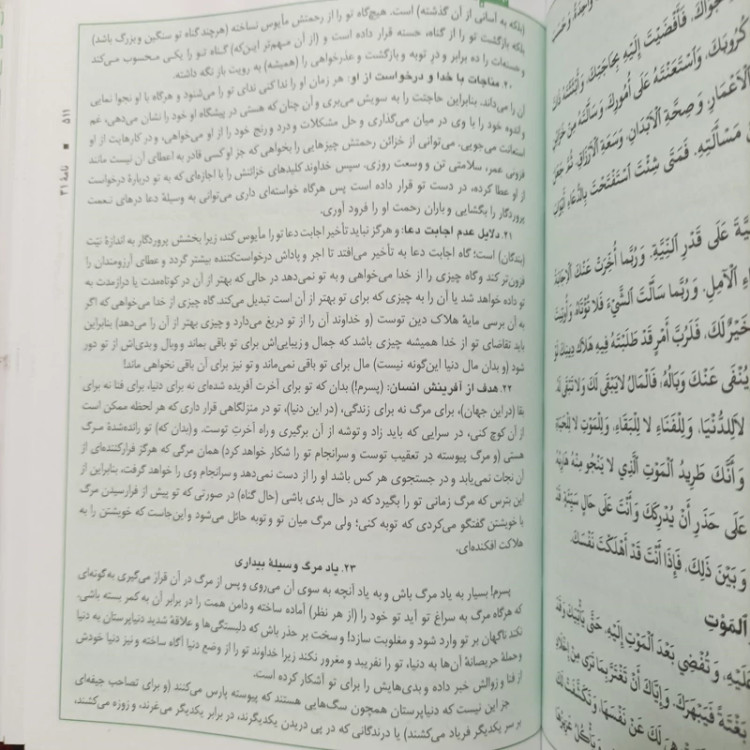 (بلکه به آسانی از آن گذشته) است. هیچ‌گاه تو را از رحمتش مأیوس نساخته (هرچند گناه تو سنگین و بزرگ باشد)
بلکه بازگشت تو را از گناه، حسنه قرار داده است و (از آن مهم‌تر این‌که) گناه تو را یکی محسوب می‌کند
و حسنات را ده برابر و در توبه و بازگشت و عذرخواهی را (همیشه) به رویت باز نگه داشته.
۲۰. مناجات با خدا و درخواست از او: هر زمان او را ندا کنی ندای تو را می‌شنود و هرگاه با او نجوا نمایی
آن را می‌داند. بنابراین حاجتت را به سویش می‌بری و آن چنان که هستی در پیشگاه او خود را نشان می‌دهی، غم
و اندوه خود را با وی در میان می‌گذاری و حل مشکلات و درد و رنج خود را از او می‌خواهی، و در کارهایت از او
استعانت می‌جویی. می‌توانی از خزائن رحمتش چیزهایی را بخواهی که جز او کسی قادر به اعطای آن نیست مانند
فزونی عمر، سلامتی تن و وسعت روزی. سپس خداوند کلیدهای خزائنش را با اجازه‌ای که به تو دربارهٔ درخواست
از او عطا کرده، در دست تو قرار داده است پس هرگاه خواسته‌ای داری می‌توانی به وسیلهٔ دعا درهای نعمت
پروردگار را بگشایی و باران رحمت او را فرود آوری.
۲۱. دلایل عدم اجابت دعا: و هرگز نباید تأخیر اجابت دعا تو را مأیوس کند، زیرا بخشش پروردگار به اندازهٔ نیّت
(بندگان) است؛ گاه اجابت دعا به تأخیر می‌افتد تا اجر و پاداش درخواست‌کننده بیشتر گردد و عطای آرزومندان را
فزون‌تر کند و گاه چیزی را از خدا می‌خواهی و به تو نمی‌دهد در حالی که بهتر از آن در کوتاه‌مدت یا درازمدت به
تو داده خواهد شد یا آن را به چیزی که برای تو بهتر از آن است تبدیل می‌کند. گاه چیزی از خدا می‌خواهی که اگر
به آن برسی مایهٔ هلاک دین توست (و خداوند آن را از تو دریغ می‌دارد و چیزی بهتر از آن را می‌دهد) بنابراین
باید تقاضای تو از خدا همیشه چیزی باشد که جمال و زیبایی‌اش برای تو باقی بماند و وبال و بدی‌اش از تو دور
شود (و بدان مال دنیا این‌گونه نیست) مال برای تو باقی نمی‌ماند و تو نیز برای آن باقی نخواهی ماند!
۲۲. هدف از آفرینش انسان: (پسرم!) بدان که تو برای آخرت آفریده شده‌ای نه برای دنیا، برای فنا نه برای
بقا (در این جهان)، برای مرگ نه برای زندگی، (در این دنیا)، تو در منزلگاهی قرار داری که هر لحظه ممکن است
از آن کوچ کنی، در سرایی که باید زاد و توشه از آن برگیری و راه آخرت توست. و(بدان که) تو رانده‌شدهٔ مرگ
هستی (و مرگ پیوسته در تعقیب توست و سرانجام تو را شکار خواهد کرد) همان مرگی که هرگز فرارکننده‌ای از
آن نجات نمی‌یابد و در جستجوی هر کس باشد او را از دست نمی‌دهد و سرانجام وی را خواهد گرفت، بنابراین از
این بترس که مرگ زمانی تو را بگیرد که در حال بدی باشی (حال گناه) در صورتی که تو پیش از فرارسیدن مرگ
با خویشتن گفتگو می‌کردی که توبه کنی؛ ولی مرگ میان تو و توبه حائل می‌شود و این‌جاست که خویشتن را به
هلاکت افکنده‌ای.
۲۳. یاد مرگ وسیلهٔ بیداری
پسرم! بسیار به یاد مرگ باش و به یاد آنچه به سوی آن می‌روی و پس از مرگ در آن قرار می‌گیری به گونه‌ای
که هرگاه مرگ به سراغ تو آید تو خود را (از هر نظر) آماده ساخته و دامن همت را در برابر آن به کمر بسته باشی.
نکند ناگهان بر تو وارد شود و مغلوبت سازد! و سخت بر حذر باش که دلبستگی‌ها و علاقهٔ شدید دنیاپرستان به دنیا
و حملهٔ حریصانهٔ آن‌ها به دنیا، تو را نفریبد و مغرور نکند زیرا خداوند تو را از وضع دنیا آگاه ساخته و نیز دنیا خودش
از فنا و زوالش خبر داده و بدی‌هایش را برای تو آشکار کرده است.
جز این نیست که دنیاپرستان همچون سگ‌هایی هستند که پیوسته پارس می‌کنند (و برای تصاحب جیفه‌ای
بر سر یکدیگر فریاد می‌کشند) یا درندگانی که در پی دریدن یکدیگرند، در برابر یکدیگر می‌غرند، و زوزه می‌کشند،
نامهٔ ۳۱ ■ ۵۱۱
فَأَفْضَيْتَ إِلَيْهِ بِحَاجَتِكَ، وَأَبْثَثْتَهُ ذَاتَ
كُرُوبَكَ، وَاسْتَعَنْتَهُ عَلَى أُمُورِكَ، وَسَأَلْتَهُ مِنْ خَزَائِنِ
الْأَعْمَارِ، وَصِحَّةِ الْأَبْدَانِ، وَسَعَةِ الْأَرْزَاقِ. ثُمَّ جَعَلَ
مَسْأَلَتِهِ، فَمَتَى شِئْتَ اسْتَفْتَحْتَ بِالدُّعَاءِ أَبْوَابَ
عَلَى قَدْرِ النِّيَّةِ. وَرُبَّمَا أُخِّرَتْ عَنْكَ الْإِجَابَةُ
الْآمِلِ. وَرُبَّمَا سَأَلْتَ الشَّيْءَ فَلَا تُؤْتَاهُ، وَأُوتِيتَ
خَيْرٌ لَكَ، فَلَرُبَّ أَمْرٍ قَدْ طَلَبْتَهُ فِيهِ هَلَاكُ دِينِكَ لَوْ
يُنْفَى عَنْكَ وَبَالُهُ، فَالْمَالُ لَا يَبْقَى لَكَ وَلَا تَبْقَى لَهُ.
لَا لِلدُّنْيَا، وَلِلْفَنَاءِ لَا لِلْبَقَاءِ، وَلِلْمَوْتِ لَا لِلْحَيَاةِ
وَأَنَّكَ طَرِيدُ الْمَوْتِ الَّذِي لَا يَنْجُو مِنْهُ هَارِبُهُ
عَلَى حَذَرِ أَنْ يُدْرِكَكَ وَأَنْتَ عَلَى حَالٍ سَيِّئَةٍ، قَدْ
وَبَيْنَ ذَلِكَ، فَإِذَا أَنْتَ قَدْ أَهْلَكْتَ نَفْسَكَ.
الْمَوْتِ
عَلَيْهِ، وَتُفْضِي بَعْدَ الْمَوْتِ إِلَيْهِ، حَتَّى يَأْتِيَكَ وَقَدْ
بَغْتَةً فَيَبْهَرَكَ. وَإِيَّاكَ أَنْ تَغْتَرَّ بِمَا تَرَى مِنْ إِخْلَادِ
لَكَ عَنْ نَفْسِهَا، وَتَكَشَّفَتْ لَكَ